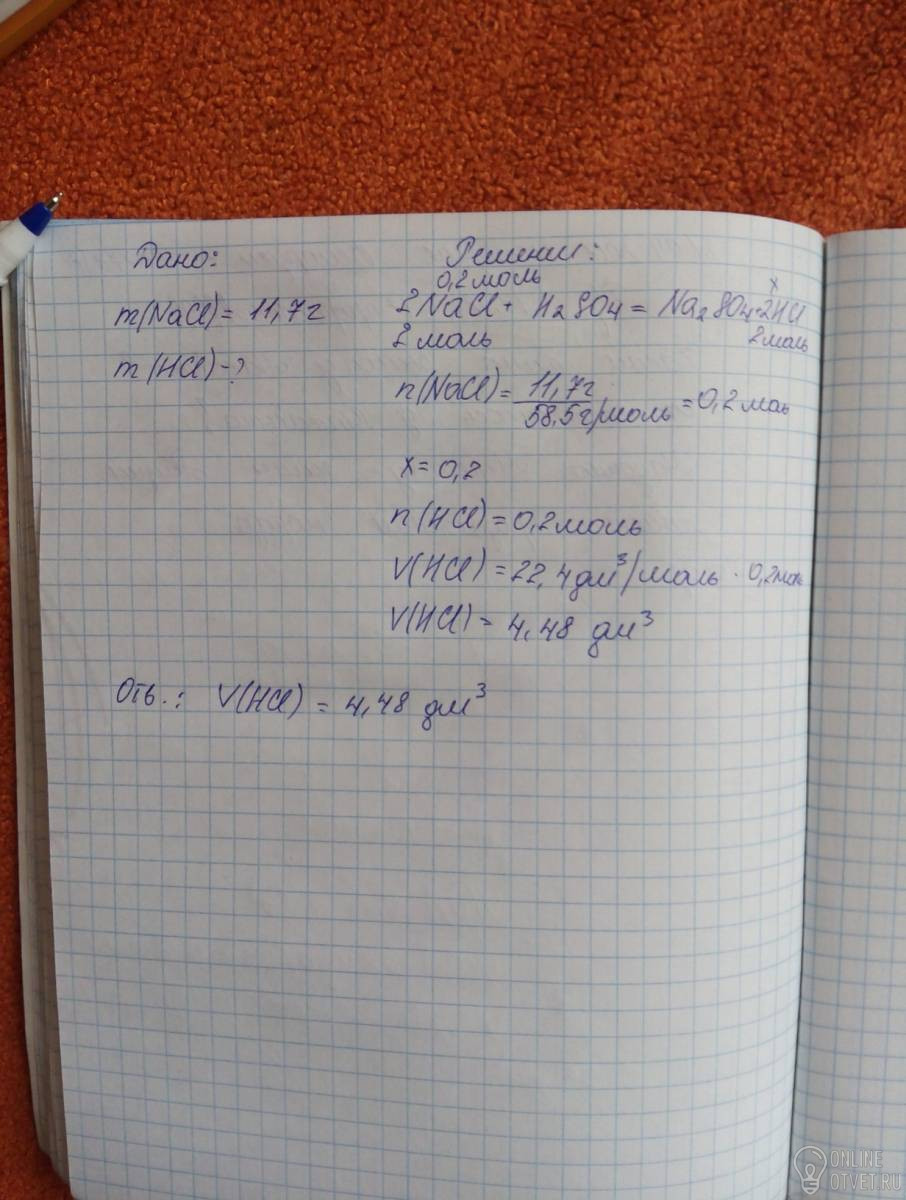 Дано:
m(NaCl) = 11,7г
m(HCl) - ?
Решение:
0,2 моль
x
2NaCl + H2SO4 = Na2SO4 + 2HCl
2 моль 2 моль
n(NaCl) = 11,7г / 58,5г/моль = 0,2 моль
x = 0,2
n(HCl) = 0,2 моль
V(HCl) = 22,4 дм³/моль · 0,2 моль
V(HCl) = 4,48 дм³
Отв.: V(HCl) = 4,48 дм³
ONLINE
OTVET.RU